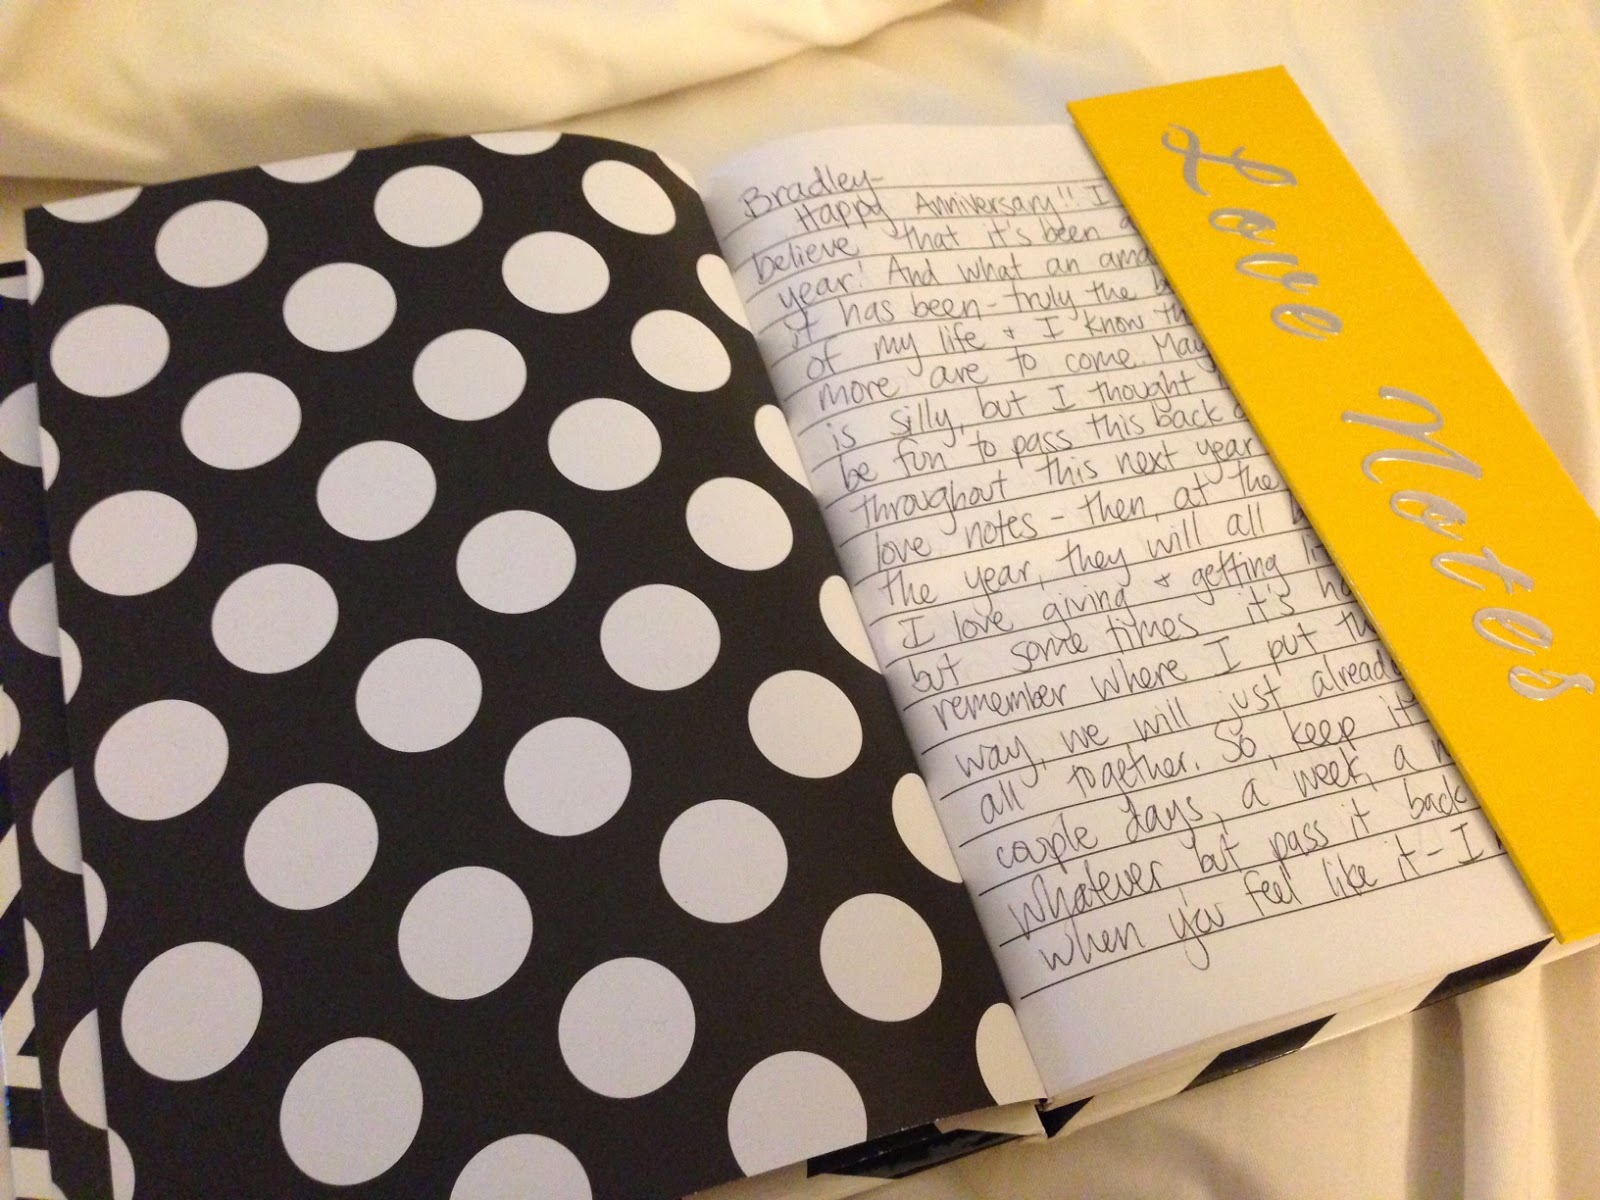 Bradley-
Happy Anniversary!! I
believe that it's been a
year! And what an ama
it has been - truly the b
of my life & I know th
more are to come. May
is silly, but I thought
be fun to pass this back a
throughout this next year
love notes - then, at the
the year, they will all
I love giving & getting lit
but some times it's ha
remember where I put th
way, we will just already
all together. So, keep it
couple days, a week, a m
whatever but pass it back
when you feel like it - I
Love Notes